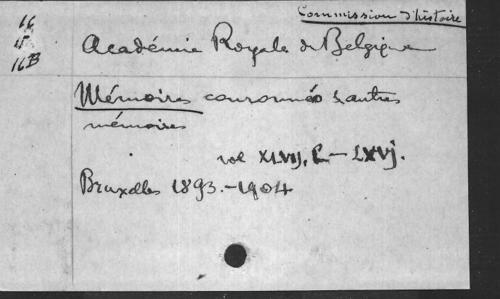 Commission d'histoire
16
16B
Académie Royale de Belgique
Mémoires couronnés & autres
mémoires
vol XLVIJ, L — LXVJ.
Bruxelles 1893.-1904